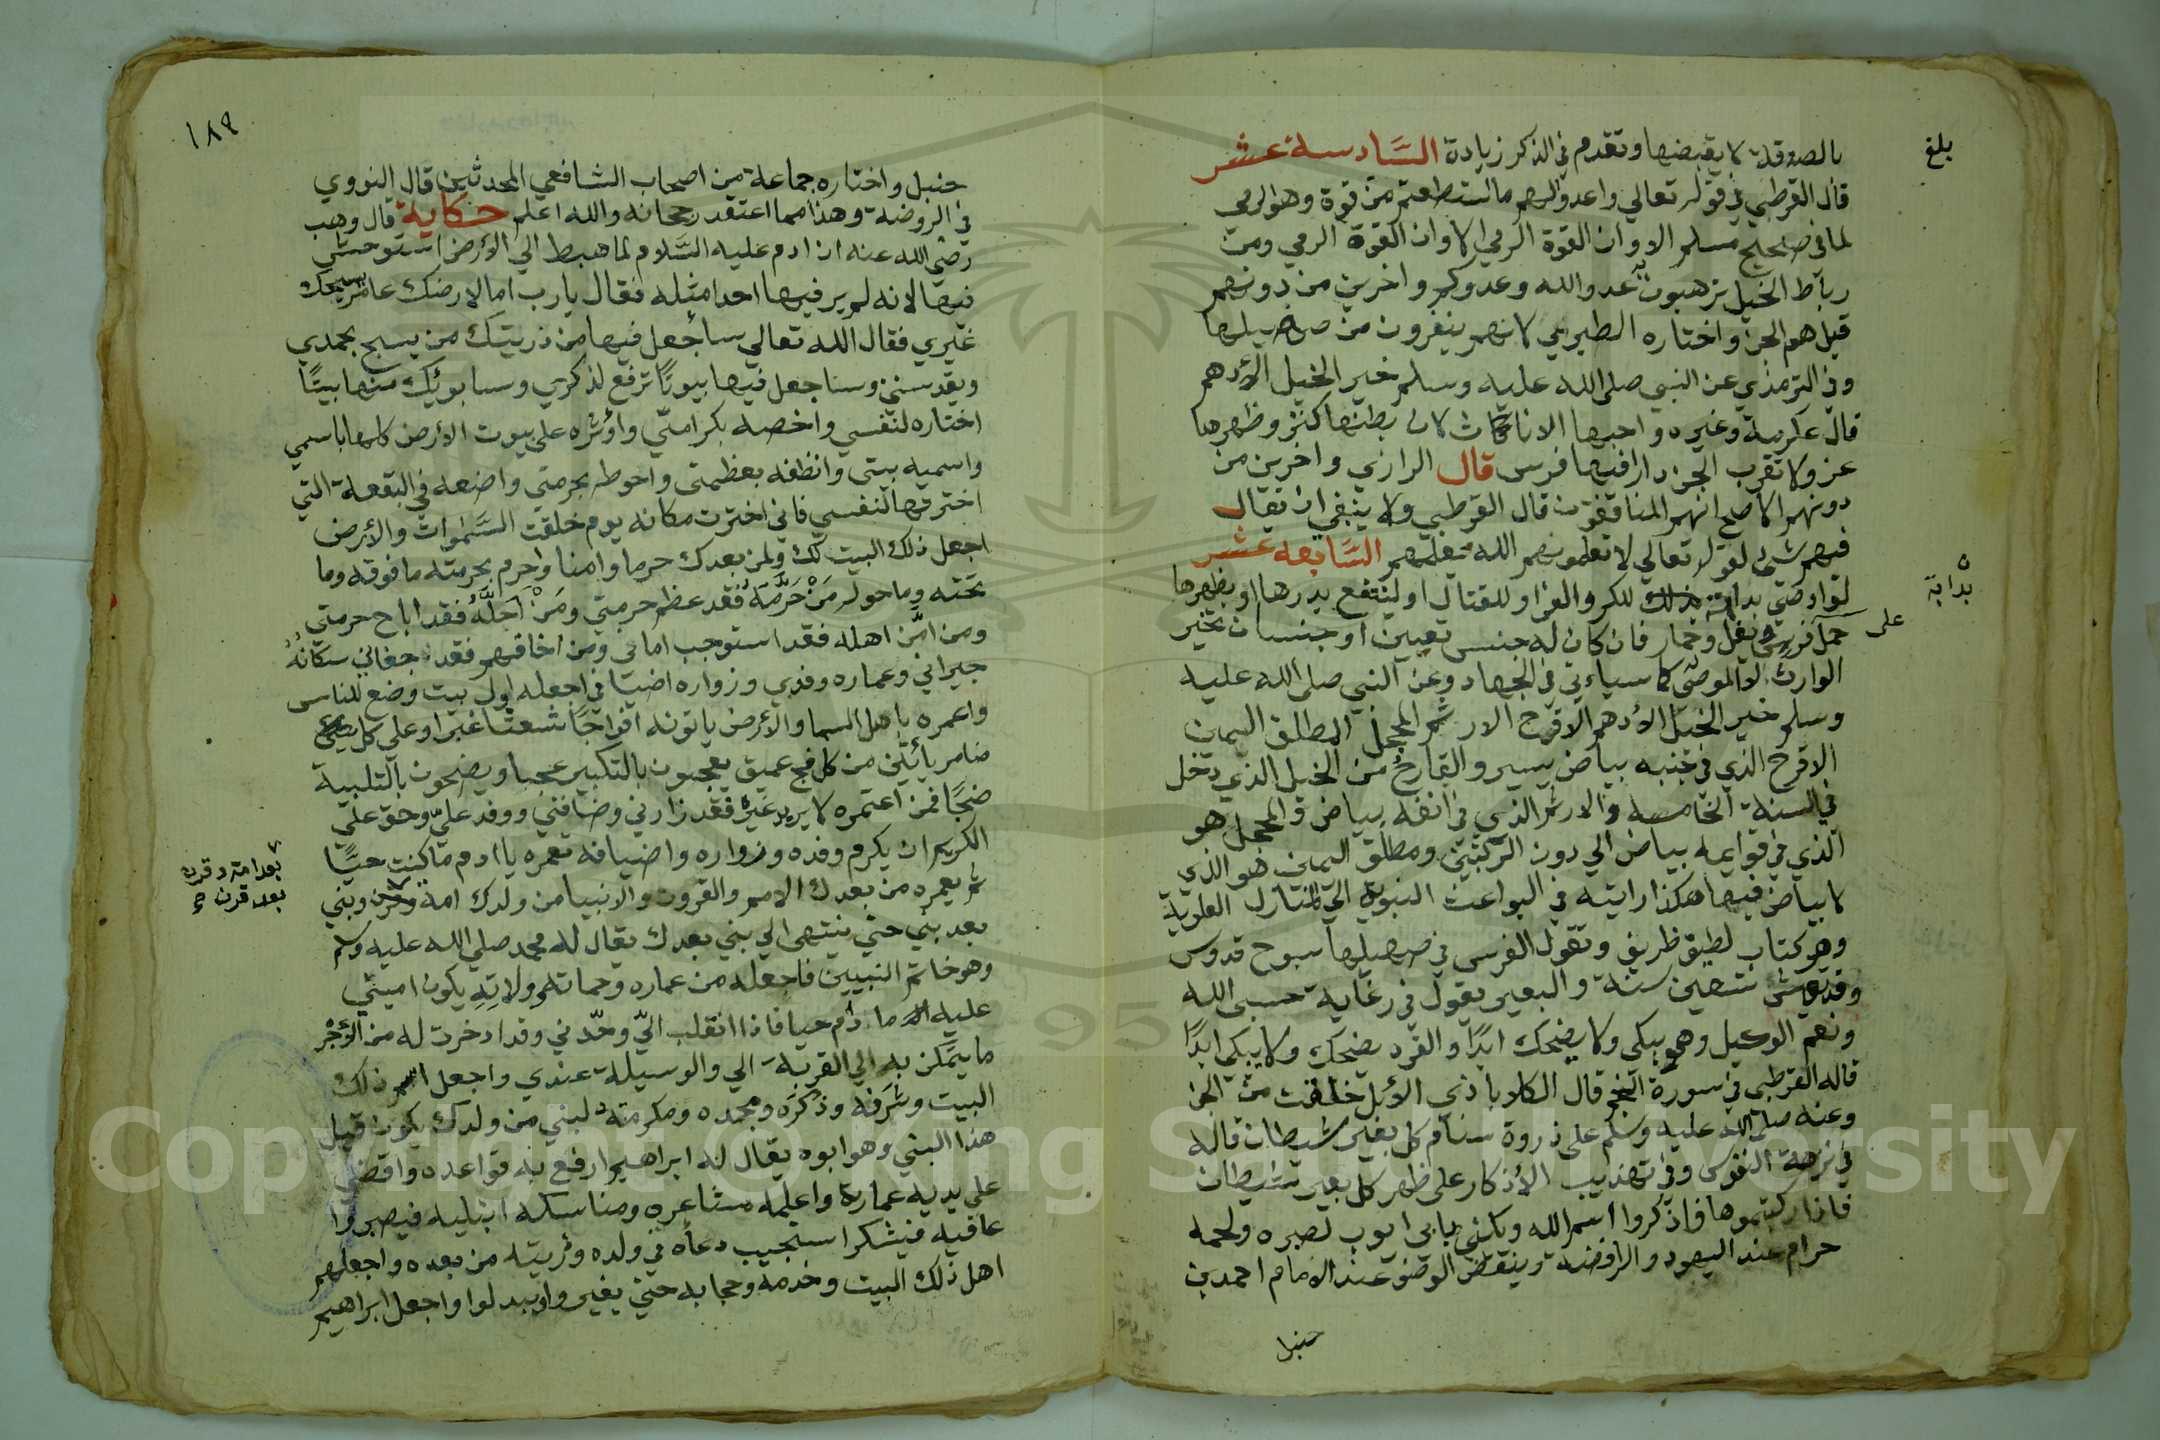 بلغ
بالصدقة لا يقبضها وتقدم في الذكر زيادة السَّادسة عشر
قال القرطبي في قوله تعالي واعدوا لهم ما استطعتم من قوة وهو الرمي
لما في صحيح مسلم الا وان القوة الرمي الا وان القوة الرمي ومن
رباط الخيل ترهبون به عدو الله وعدوكم واخرين من دونهم
قيل هم الجن واختاره الطبري لانهم ينفرون من صهيلها
وفي الترمذي عن النبي صلى الله عليه وسلم خير الخيل الأدهم
قال عكرمة وغيره واحبها الاناث لان بطنها كنز وظهرها
عز ولا تقرب الجن دارا فيها فرس قال الرازي واخرين من
دونهم الاصح انهم المنافقون قال القرطبي ولا ينبغي ان يقال
فيهم شئ لقوله تعالي لا تعلمونهم الله يعلمهم السَّابعة عشر
لو اوصي بدابة للكر والفر او للقتال او لينتفع بدرها او بظهرها
بدابة
على
حمل فرس بغل وحمار فان كان له جنس تعين او جنسان تخير
الوارث لو الموصي كما سياءتي في الجهاد وعن النبي صلى الله عليه
وسلم خير الخيل الأدهم الاقرح الارثم المحجل المطلق اليمين
الاقرح الذي في جبنه بياض يسير والقارح من الخيل الذي دخل
في السنة الخامسة والارثم الذي في انفه بياض والمحجل هو
الذي في قوايمه بياض الي دون الركبتين ومطلق اليمين هو الذي
لا بياض فيها هكذا رايته في البواعث النبوية الي المنازل العلوية
وهو كتاب لطيف ظريف وتقول الفرس في صهيلها سبوح قدوس
وقد تعيش تسعين سنة والبعير يقول في رغايه حسبي الله
ونعم الوكيل وهو يبكي ولا يضحك ابدًا والقرد يضحك ولا يبكي ابدًا
قاله القرطبي في سورة النجم قال الكلاباذي الأبل خلقت من الجن
وعنه صلى الله عليه وسلم على ذروة سنام كل بعير شيطان قاله
في نزهة النفوس وفي تهذيب الأذكار على ظهر كل بعير شيطان
فاذا ركبتموها فاذكروا اسم الله ويكني بابي ايوب لصبره ولحمه
حرام عند اليهود والرافضة وينقض الوضو عند الامام احمد بن
حنبل
١٨٩
حنبل واختاره جماعة من اصحاب الشافعي المحدثين قال النووي
في الروضة وهذا مما اعتقد رجحانه والله اعلم حكاية قال وهب
رضي الله عنه ان ادم عليه السَّلام لما هبط الي الأرض استوحش
فيها لانه لم ير فيها احدا مثله فقال يارب اما لارضك عامر يسبحك
غيري فقال الله تعالي ساجعل فيها من ذريتك من يسبح بحمدي
ويقدسني وساجعل فيها بيوتًا ترفع لذكري وسابوئك منها بيتًا
اختاره لنفسي واخصه بكرامتي واوثره على بيوت الأرض كلها باسمي
واسميه بيتي وانظفه بعظمتي واحوطه بحرمتي واضعه في البقعة التي
اخترتها لنفسي فاني اخترت مكانه يوم خلقت السَّموات والأرض
اجعل ذلك البيت لك ولمن بعدك حرما وامنا واحرم بحرمته ما فوقه وما
تحته وما حوله مَنْ حَرَّمَهُ فقد عظم حرمتي ومَنْ اَحَلَّهُ فقد اباح حرمتي
ومن امّن اهله فقد استوجب اماني ومن اخافهم فقد جفاني سكّانهُ
جيراني وعماره وفدي وزواره اضيافي اجعله اول بيت وضع للناس
واعمره باهل السما والأرض ياتونه افواجًا شعثًا غبرا وعلي كل
ضامر يأتين من كل فج عميق يعجون بالتكبير عجبا ويضجون بالتلبية
ضجًا فمن اعتمره لا يريد غيره فقد زارني وضافني ووفد عليّ وحق علي
الكريم ان يكرم وفده وزواره واضيافه تعمره يا ادم ما كنت حيًا
ثم يعمره من بعدك الامم والقرون والانبيا من ولدك امة وقرن ونبي
بعد امة وقرن
بعد قرن صح
بعد نبي حتي ينتهي الي نبي بعدك يقال له محمد صلي الله عليه وسلم
وهو خاتم النبيين فاجعله من عماره وحماته وولاتِهِ يكون اميني
عليه ما دام حيا فاذا انقلب اليّ وجدني وقد ادخرت له من الأجر
ما يتمكن به الي القربة الي والوسيلة عندي واجعل اسم ذلك
البيت وشرَفه وذكرَه ومجده ومكرمته لبني من ولدك يكون قبل
هذا النبي وهو ابوه يقال له ابراهيم ارفع به قواعده واقضي
على يديه عمارة واعلمه مشاعره ومناسكه ابتليه فيصبروا
عافيه فيشكر استجيب دعاه في ولده وذريته من بعده واجعلهم
اهل ذلك البيت وخدمه وحجابه حتي يغيروا ويبدلوا واجعل ابراهيم
Copyright © King Saud University